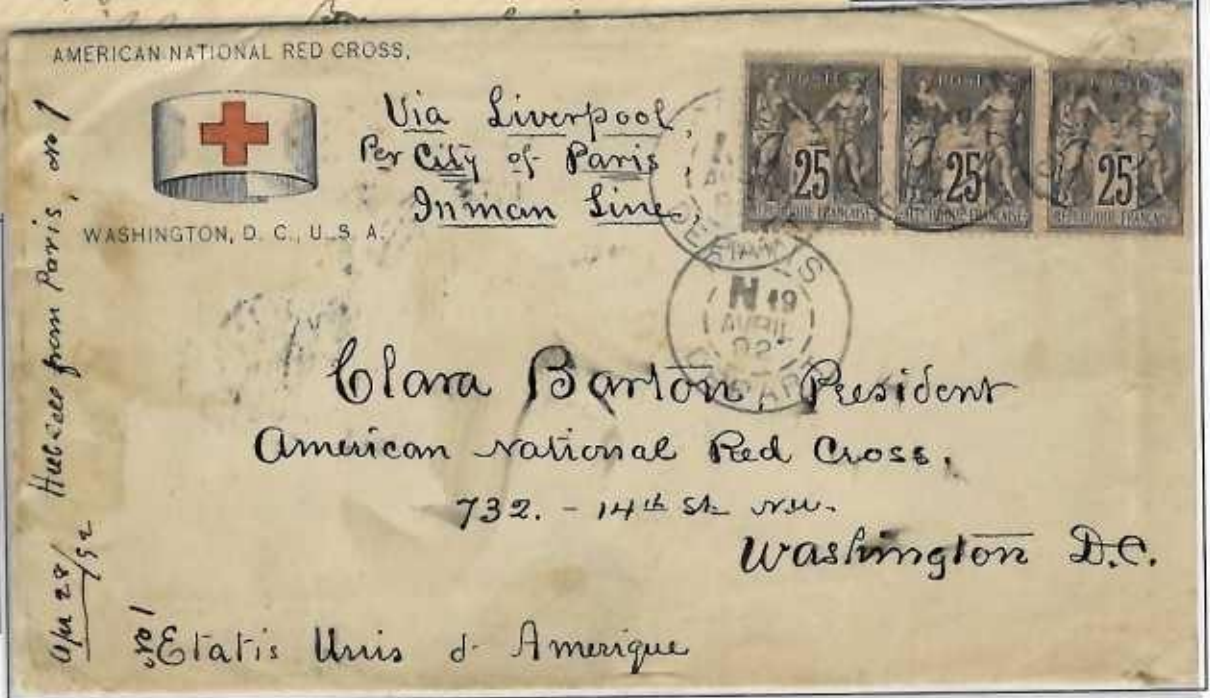 AMERICAN NATIONAL RED CROSS,
WASHINGTON, D. C., U. S. A.
Via Liverpool,
Per City of Paris
Inman Line,
POSTE
25
REPUBLIQUE FRANCAISE
POSTE
25
REPUBLIQUE FRANCAISE
POSTE
25
REPUBLIQUE FRANCAISE
N 19
AVRIL
92
DEPART
Clara Barton, President
American National Red Cross,
732. - 14th St. N.W.
Washington D.C.
No 1
Etatis Unis d. Amerique
Apr 28/92
from Paris, No 1